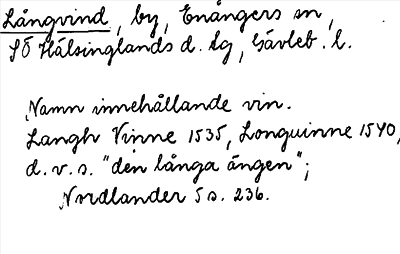 Långvind, by, Enångers sn,
SÖ Hälsinglands d. sg, Gävleb. l.
Namn innehållande vin.
Langh Vinne 1535, Longuinne 1540,
d. v. s. "den långa ängen";
Nordlander 5 s. 236.